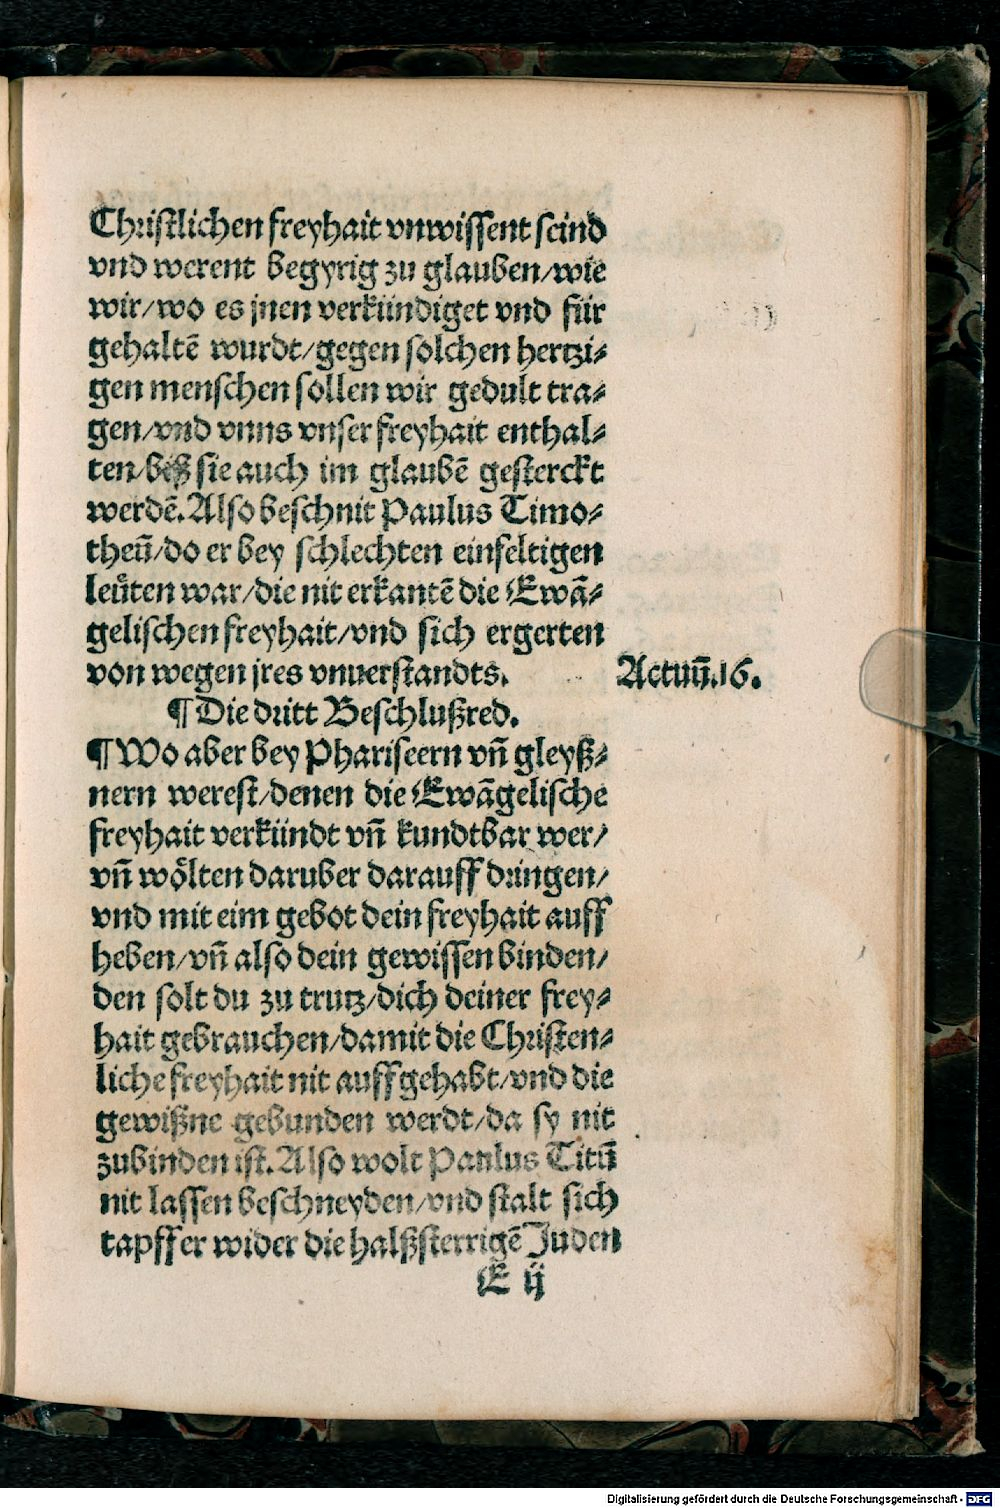 Christlichen freyhait vnwissent seind
vnd werent begyrig zu glauben/wie
wir/wo es jnen verkündiget vnd für
gehaltē wurdt/gegen solchen hertzi⸗
gen menschen sollen wir gedult tra⸗
gen/vnd vnns vnser freyhait enthal⸗
ten/biß sie auch im glaubē gesterckt
werdē. Also beschnit Paulus Timo⸗
theū/do er bey schlechten einfeltigen
leüten war/die nit erkantē die Ewā⸗
gelischen freyhait/vnd sich ergerten
von wegen jres vnuerstandts. Actuū.16.
¶ Die dritt Beschlußred.
¶ Wo aber bey Phariseern vñ gleyß⸗
nern werest/denen die Ewāgelische
freyhait verkündt vñ kundtbar wer/
vñ wölten daruber darauff dringen/
vnd mit eim gebot dein freyhait auff
heben/vñ also dein gewissen binden/
den solt du zu trutz/dich deiner frey⸗
hait gebrauchen/damit die Christen⸗
liche freyhait nit auffgehabt/vnd die
gewißne gebunden werdt/da sy nit
zubinden ist. Also wolt Paulus Titū
nit lassen beschneyden/vnd stalt sich
tapffer wider die halßsterrigē Juden
E ij
Digitalisierung gefördert durch die Deutsche Forschungsgemeinschaft - DFG